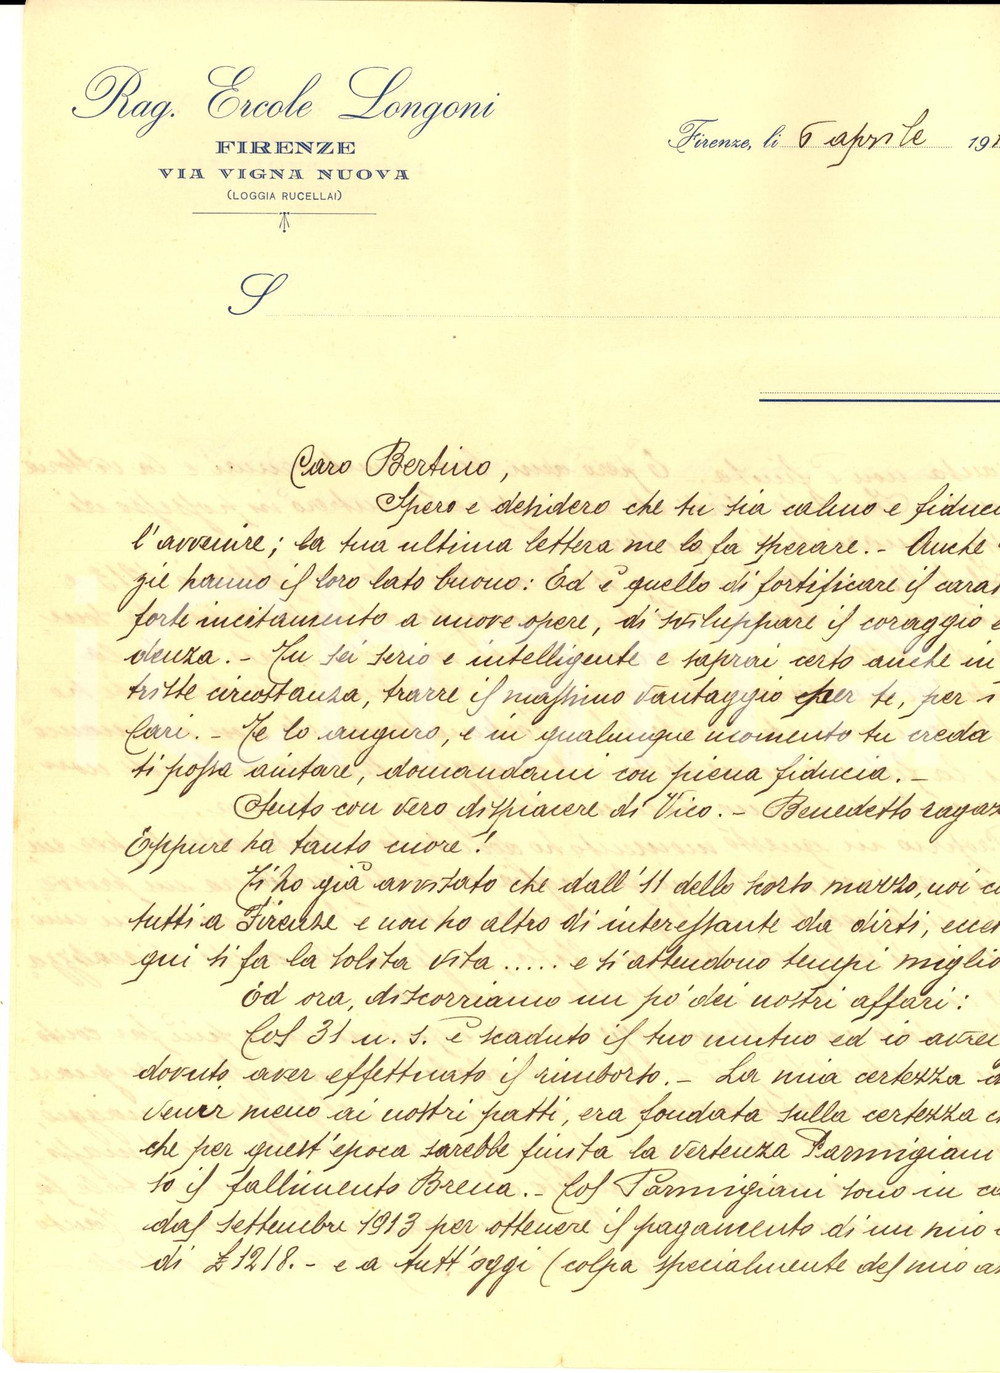 Rag. Ercole Longoni
FIRENZE
VIA VIGNA NUOVA
(LOGGIA RUCELLAI)
Firenze, li 6 aprile 191
S
Caro Bertino,
Spero e desidero che tu sia calmo e fiduci
l'avvenire; la tua ultima lettera me lo fa sperare. - Anche
gie hanno il loro lato buono: Ed è quello di fortificare il carat
forte incitamento a nuove opere, di sviluppare il coraggio e
denza. - Tu sei serio e intelligente e saprai certo anche in
triste circostanza, trarre il massimo vantaggio per te, per i
Cari. - Te lo auguro, e in qualunque momento tu creda
ti possa aiutare, domandami con piena fiducia. -
Sento con vero dispiacere di Vico. - Benedetto ragaz
Eppure ha tanto cuore!
Ti ho già avvisato che dall'11 dello scorso marzo, noi
tutti a Firenze e non ho altro di interessante da dirti,
qui si fa la solita vita ..... e si attendono tempi miglio
Ed ora, discorriamo un po' dei nostri affari:
Col 31 u. s. è scaduto il tuo mutuo ed io avrei
dovuto aver effettuato il rimborso. - La mia certezza
venir meno ai nostri patti, era fondata sulla certezza
che per quest'epoca sarebbe finita la vertenza Parmigiani
to il fallimento Brena. - Col Parmigiani sono in
dal settembre 1913 per ottenere il pagamento di un mio
di £ 1218. - e a tutt'oggi (colpa specialmente del mio